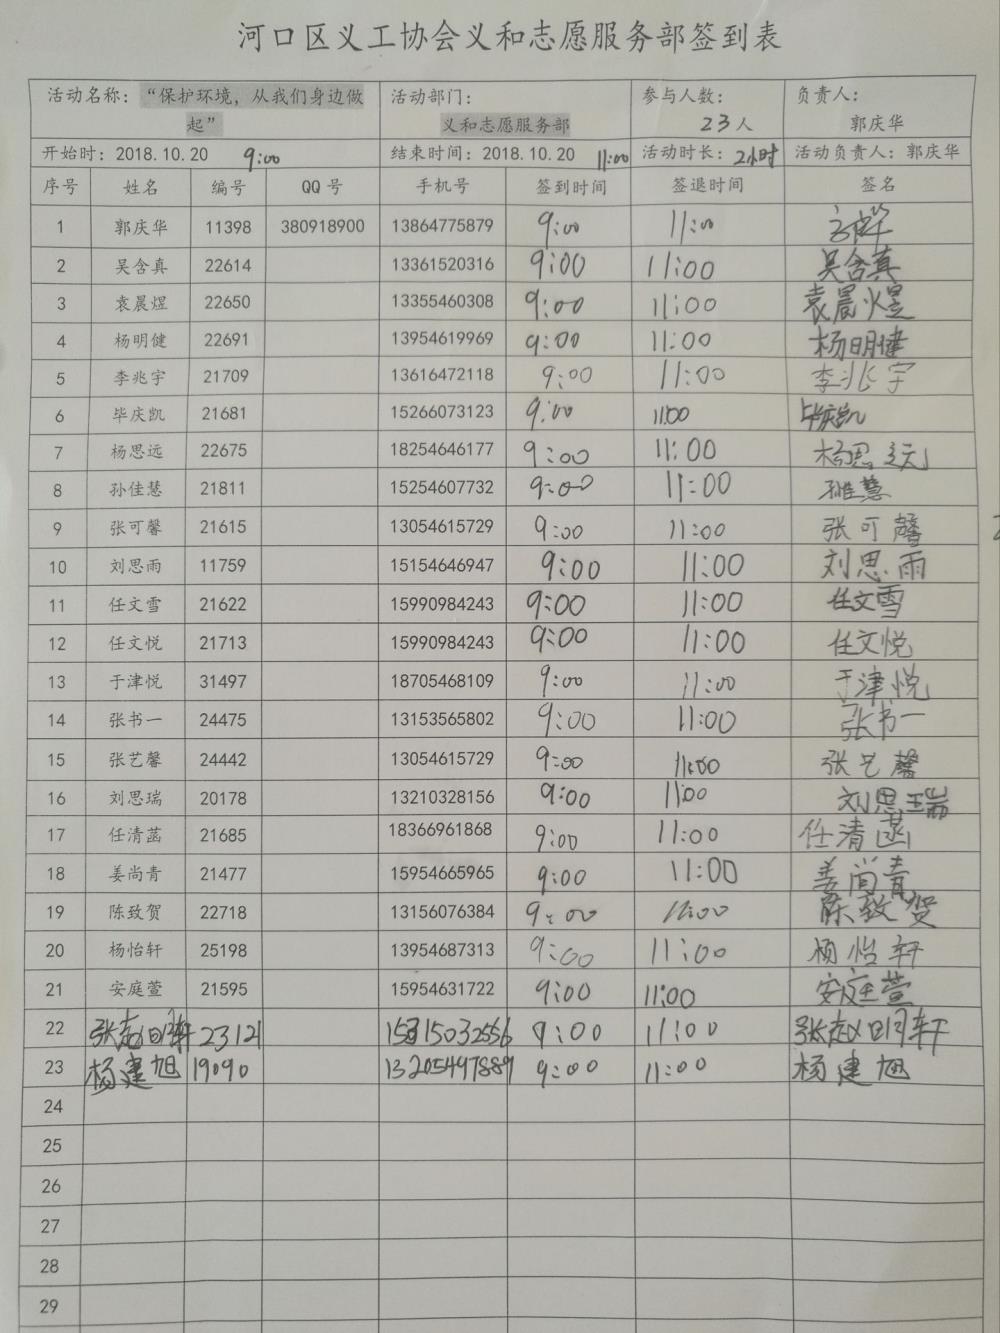 河口区义工协会义和志愿服务部签到表
活动名称：“保护环境，从我们身边做起” 活动部门：义和志愿服务部 参与人数：23人 负责人：郭庆华
开始时：2018.10.20 9:00 结束时间：2018.10.20 11:00 活动时长：2小时 活动负责人：郭庆华
序号 姓名 编号 QQ号 手机号 签到时间 签退时间 签名
1 郭庆华 11398 380918900 13864775879 9:00 11:00
2 吴含真 22614 13361520316 9:00 11:00 吴含真
3 袁晨煜 22650 13355460308 9:00 11:00 袁晨煜
4 杨明健 22691 13954619969 9:00 11:00 杨明健
5 李兆宇 21709 13616472118 9:00 11:00 李兆宇
6 毕庆凯 21681 15266073123 9:00 11:00 毕庆凯
7 杨思远 22675 18254646177 9:00 11:00 杨思远
8 孙佳慧 21811 15254607732 9:00 11:00 孙佳慧
9 张可馨 21615 13054615729 9:00 11:00 张可馨
10 刘思雨 11759 15154646947 9:00 11:00 刘思雨
11 任文雪 21622 15990984243 9:00 11:00 任文雪
12 任文悦 21713 15990984243 9:00 11:00 任文悦
13 于津悦 31497 18705468109 9:00 11:00 于津悦
14 张书一 24475 13153565802 9:00 11:00 张书一
15 张艺馨 24442 13054615729 9:00 11:00 张艺馨
16 刘思瑞 20178 13210328156 9:00 11:00 刘思瑞
17 任清菡 21685 18366961868 9:00 11:00 任清菡
18 姜尚青 21477 15954665965 9:00 11:00 姜尚青
19 陈致贺 22718 13156076384 9:00 11:00 陈致贺
20 杨怡轩 25198 13954687313 9:00 11:00 杨怡轩
21 安庭萱 21595 15954631722 9:00 11:00 安庭萱
22 23121 9:00 11:00
23 杨建旭 19090 13205447889 9:00 11:00 杨建旭
24
25
26
27
28
29